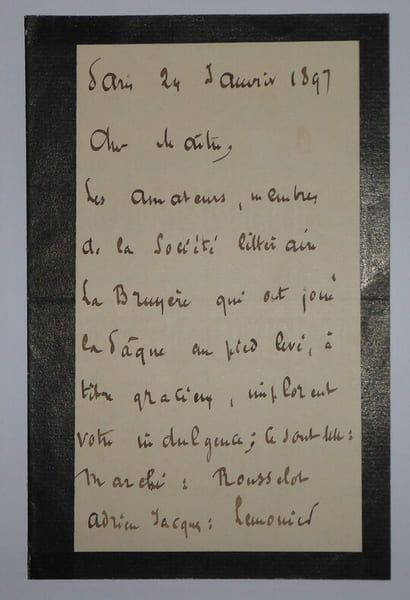 Paris 24 Janvier 1897
Cher Maître,
Les amateurs, membres
de la Société littéraire
La Bruyère qui ont joué
la Pâque au pied levé, à
titre gracieux, implorent
votre indulgence; ce sont :
Marche : Rousselot
Adrien Jacque : Lemonier